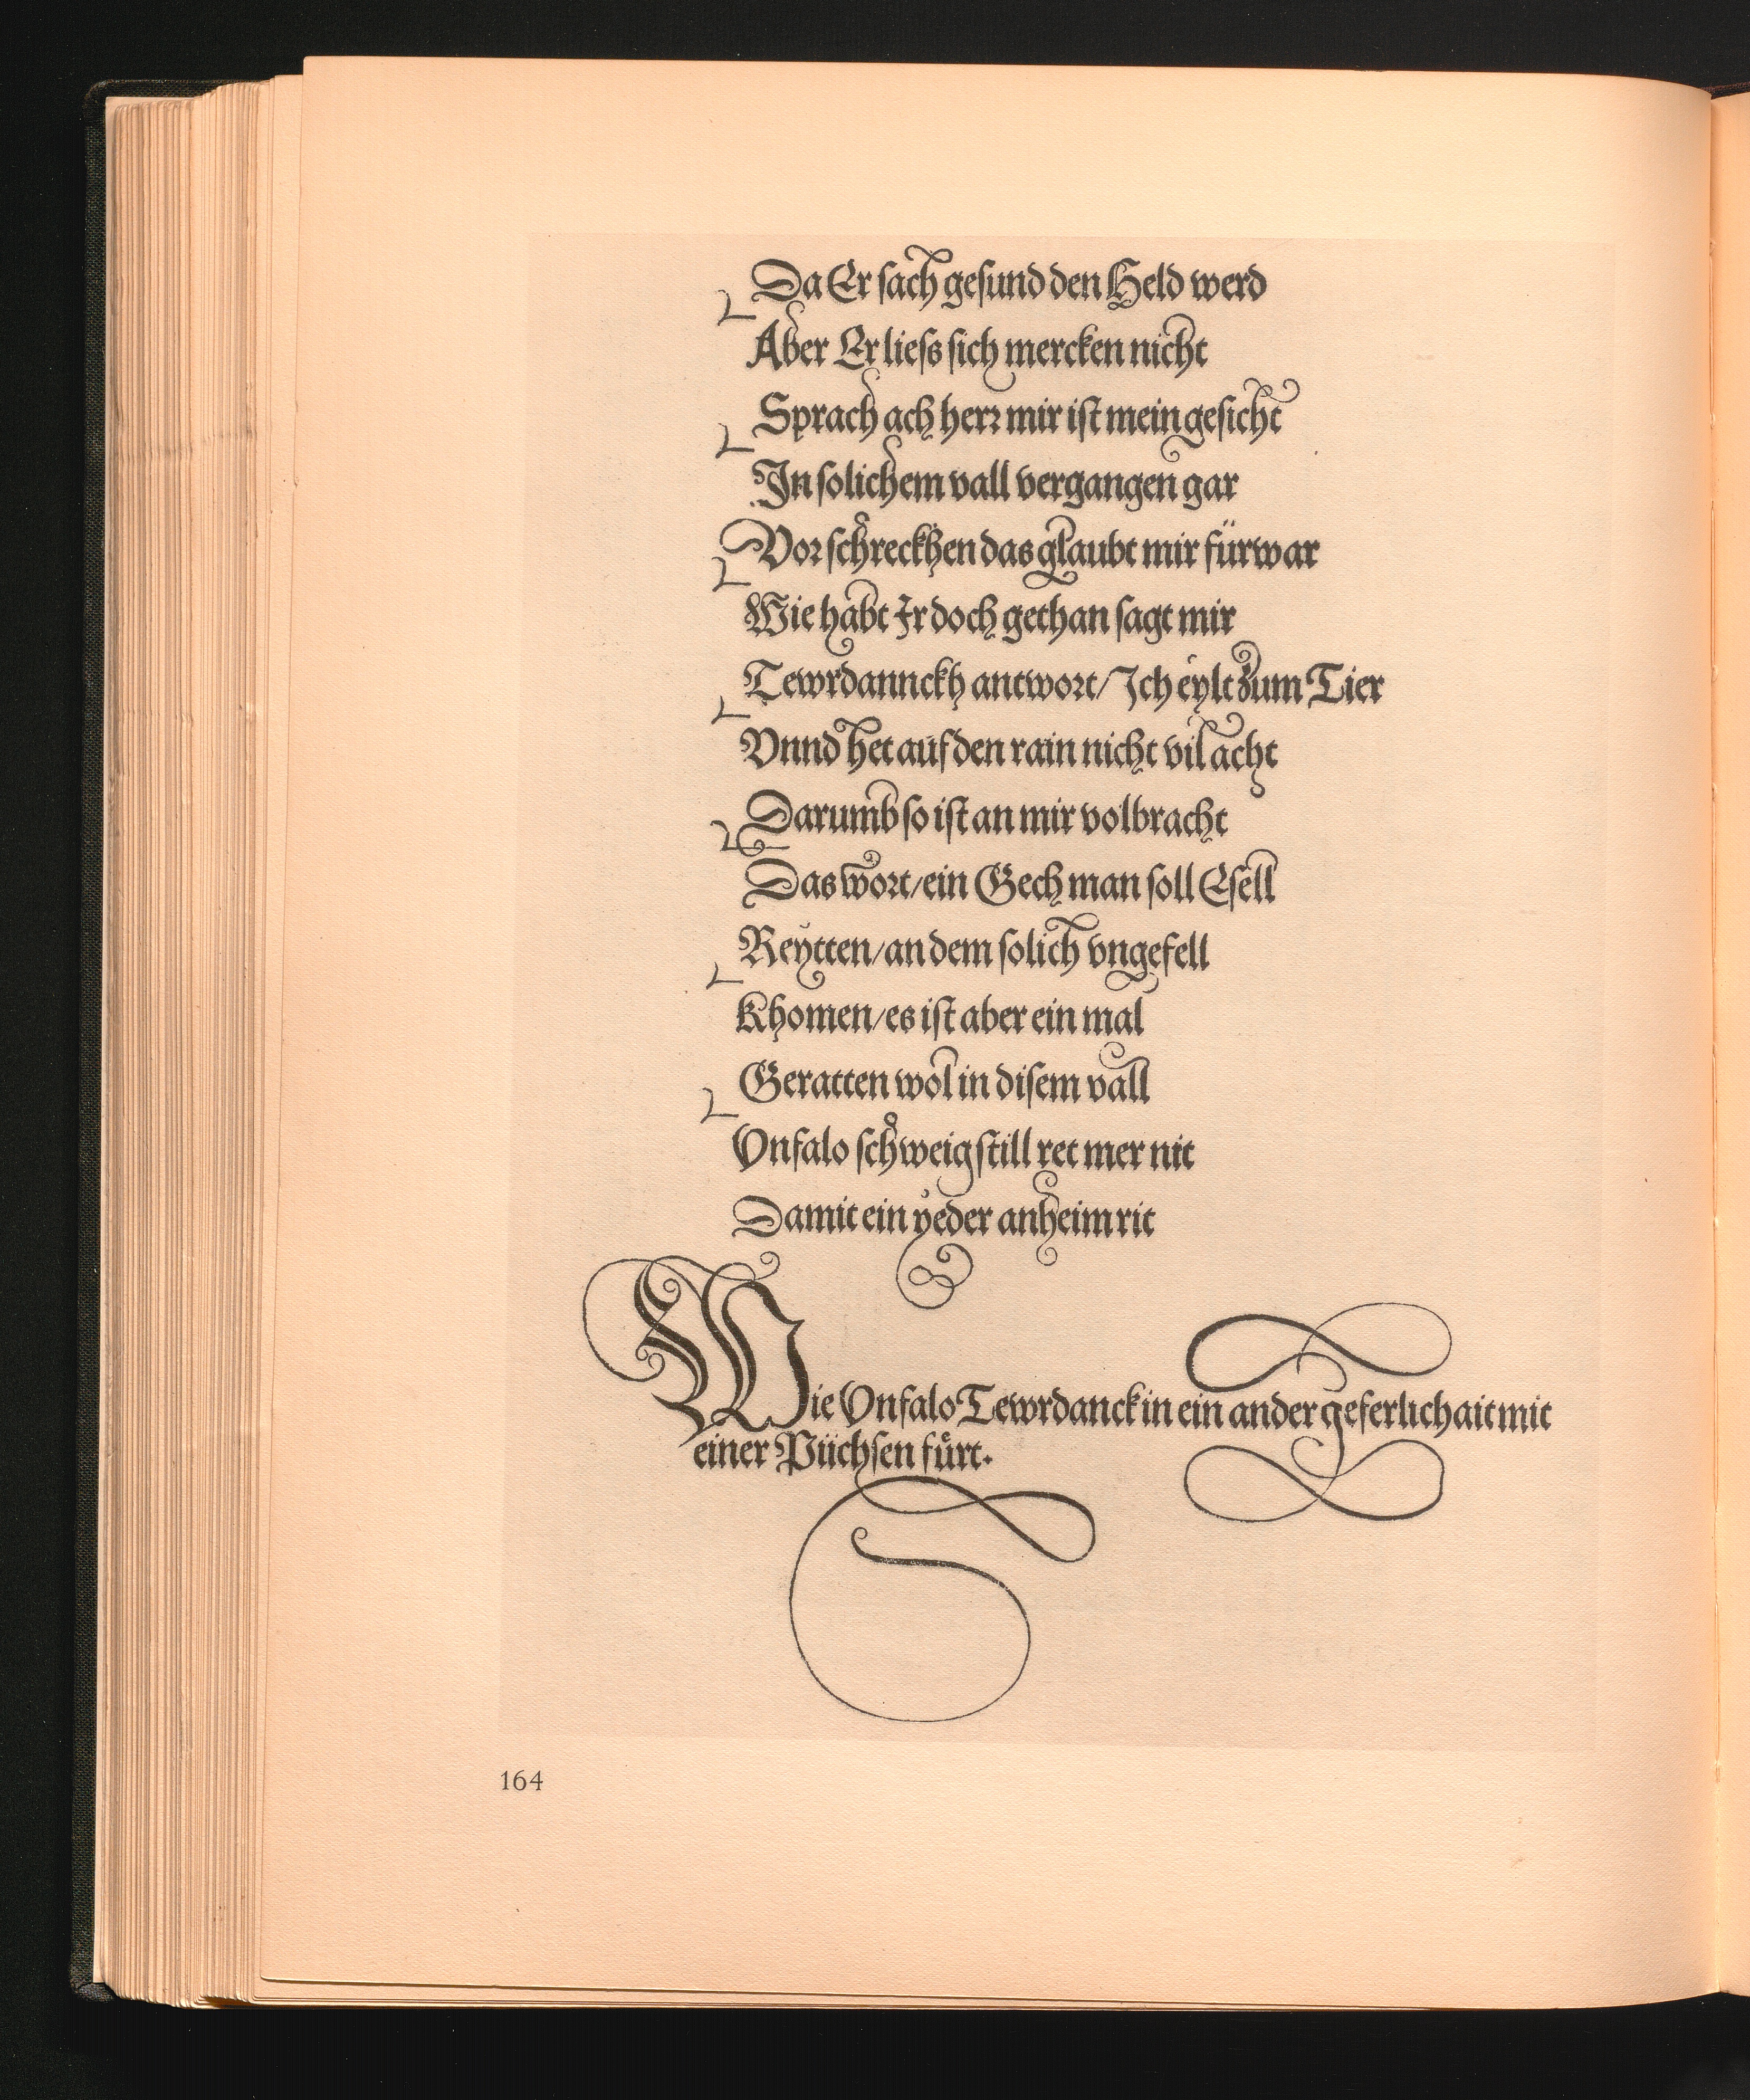 Da Er sach gesund den Held werd
Aber Er liess sich mercken nicht
Sprach ach herr mir ist mein gesicht
In solichem vall vergangen gar
Vor schreckhen das glaubt mir fürwar
Wie habt Ir doch gethan sagt mir
Tewrdannckh antwort/Ich eylt zum Tier
Vnnd het auf den rain nicht vil acht
Darumb so ist an mir volbracht
Das wort/ein Gech man soll Esell
Reytten/an dem solich vngefell
Khomen/es ist aber ein mal
Geratten wol in disem vall
Vnfalo schweig still ret mer nit
Damit ein yeder anheim rit
Wie Vnfalo Tewrdanck in ein ander geferlichait mit
einer Püchsen fůrt.
164